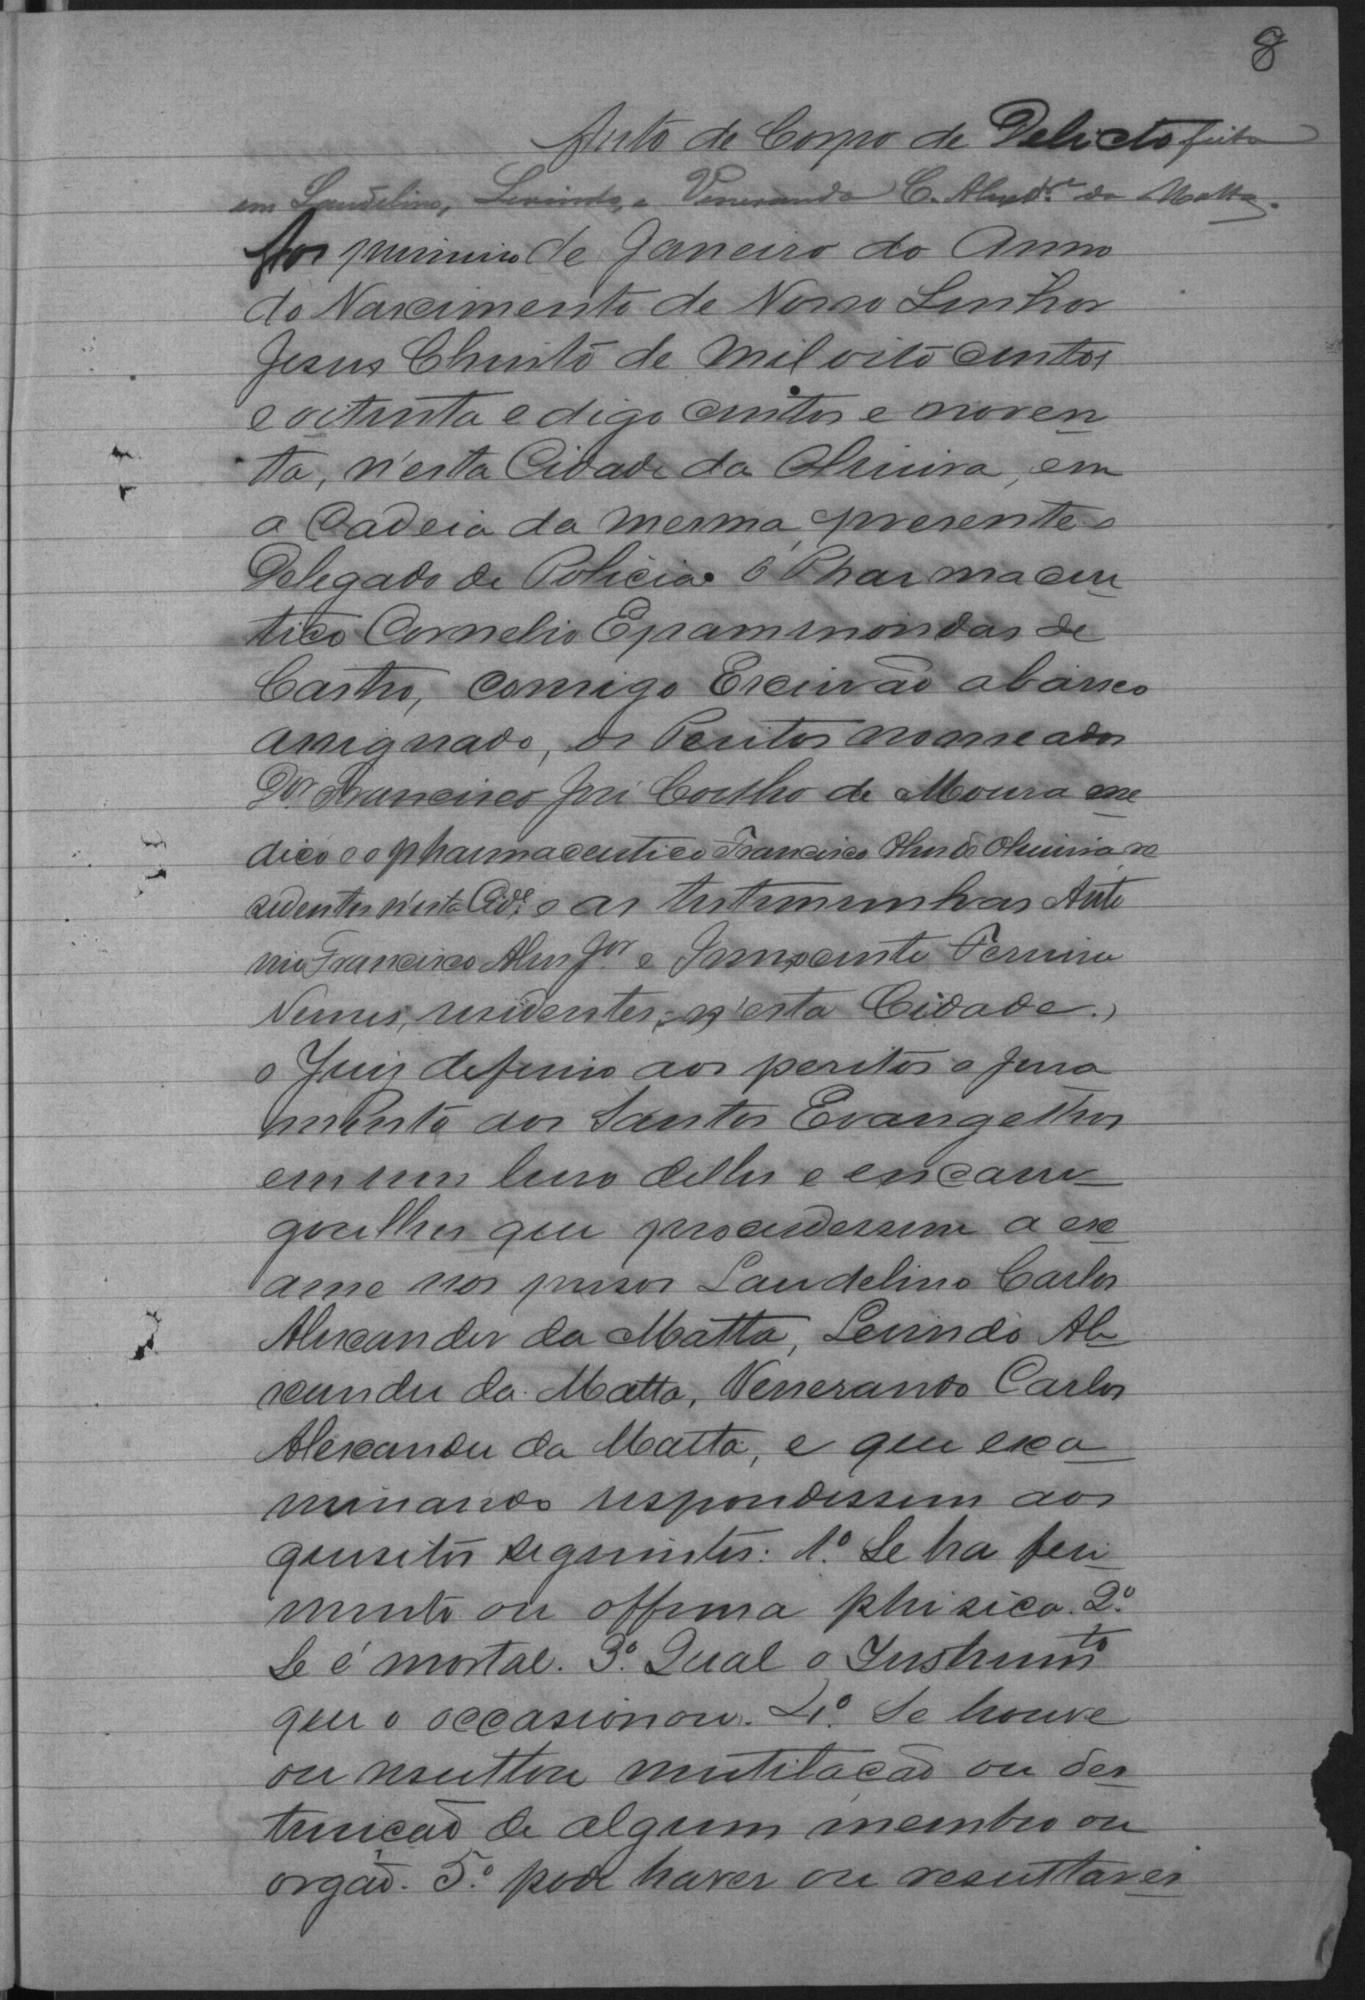 8
Auto de Corpo de Delicto feito
em Laudelino, Levindo, e Venerando C. Alexdre da Matta.
Aos primeiro de Janeiro do Anno
do Nascimento de Nosso Senhor
Jesus Christo de mil oito centos
e oitenta e digo centos e noven
ta, n'esta Cidade da Oliveira, em
a Cadeia da mesma, presente o
Delegado de Policia o Pharmaceu
tico Cornelio Epaminondas de
Castro, comigo Escrivão abaixo
assignado, os Peritos nomeados
Dor Francisco José Coelho de Moura me
dico e o pharmaceutico Francisco Alves de Oliveira, re
sidentes n'esta Cide, e as testemunhas Anto
nio Francisco Alves Jor e Innocente Ferreira
Nunes, residentes, n'esta Cidade,
o Juiz deferio aos peritos o jura
mento aos Santos Evangelhos
em um livro delles e encarre
goulhes que procedessem a ex
ame nos presos Laudelino Carlos
Alexander da Matta, Levindo Ale
xandre da Matta, Venerando Carlos
Alexandre da Matta, e que exa
minando respondessem aos
quesitos seguintes: 1º Se ha feri
mento ou offensa phisica. 2º
Se é mortal. 3º. Qual o Instrumto
que o occasionou. 4º. Se houve
ou resultou mutilação ou des
truição de algum membro ou
orgão. 5º pode haver ou resultar es